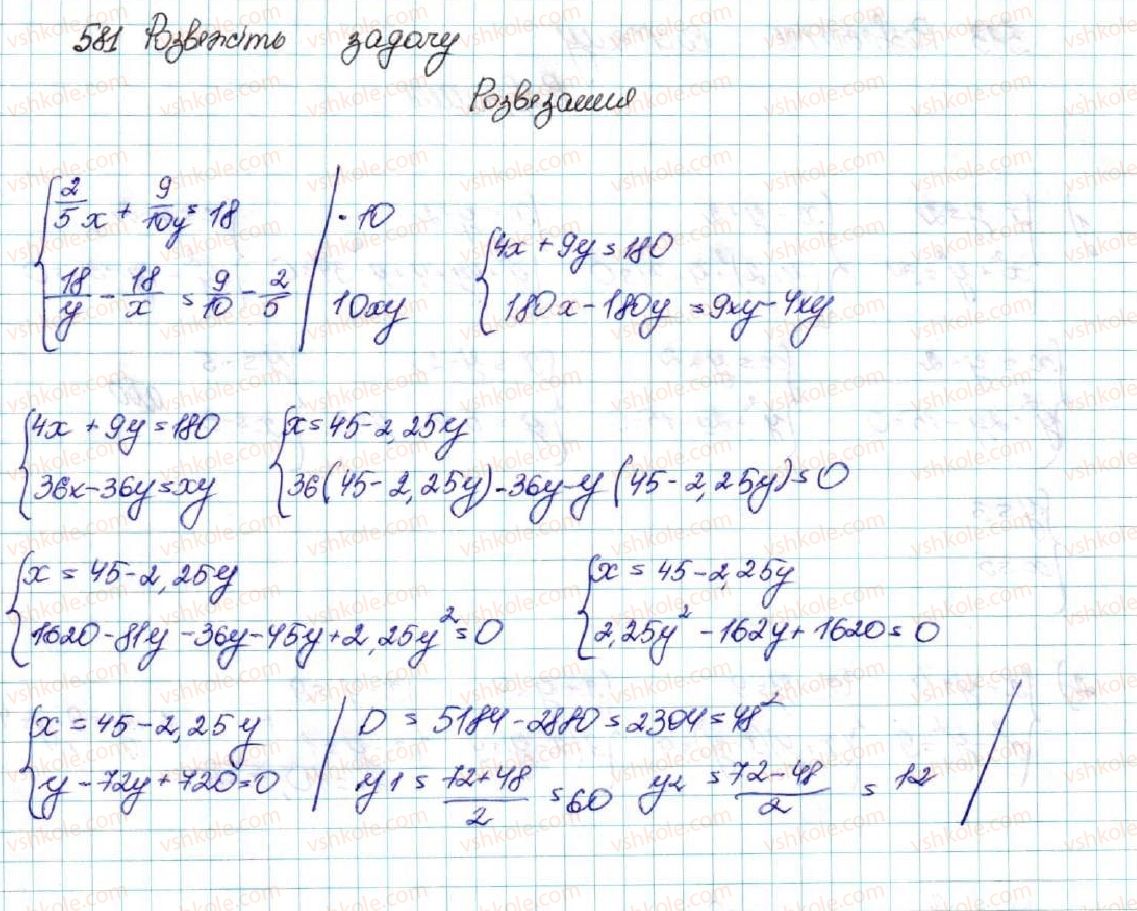 581 Розвежіть задачу
Розвезання
{ 2/5 x + 9/10 y = 18 | · 10
{ 18/y - 18/x = 9/10 - 2/5 | 10xy
{ 4x + 9y = 180
{ 180x - 180y = 9xy - 4xy
{ 4x + 9y = 180
{ 36x - 36y = xy
{ x = 45 - 2,25y
{ 36(45 - 2,25y) - 36y - y(45 - 2,25y) = 0
{ x = 45 - 2,25y
{ 1620 - 81y - 36y - 45y + 2,25y² = 0
{ x = 45 - 2,25y
{ 2,25y² - 162y + 1620 = 0
{ x = 45 - 2,25y
{ y - 72y + 720 = 0
D = 5184 - 2880 = 2304 = 48²
y1 = (72 + 48)/2 = 60 y2 = (72 - 48)/2 = 12
vshkole.com